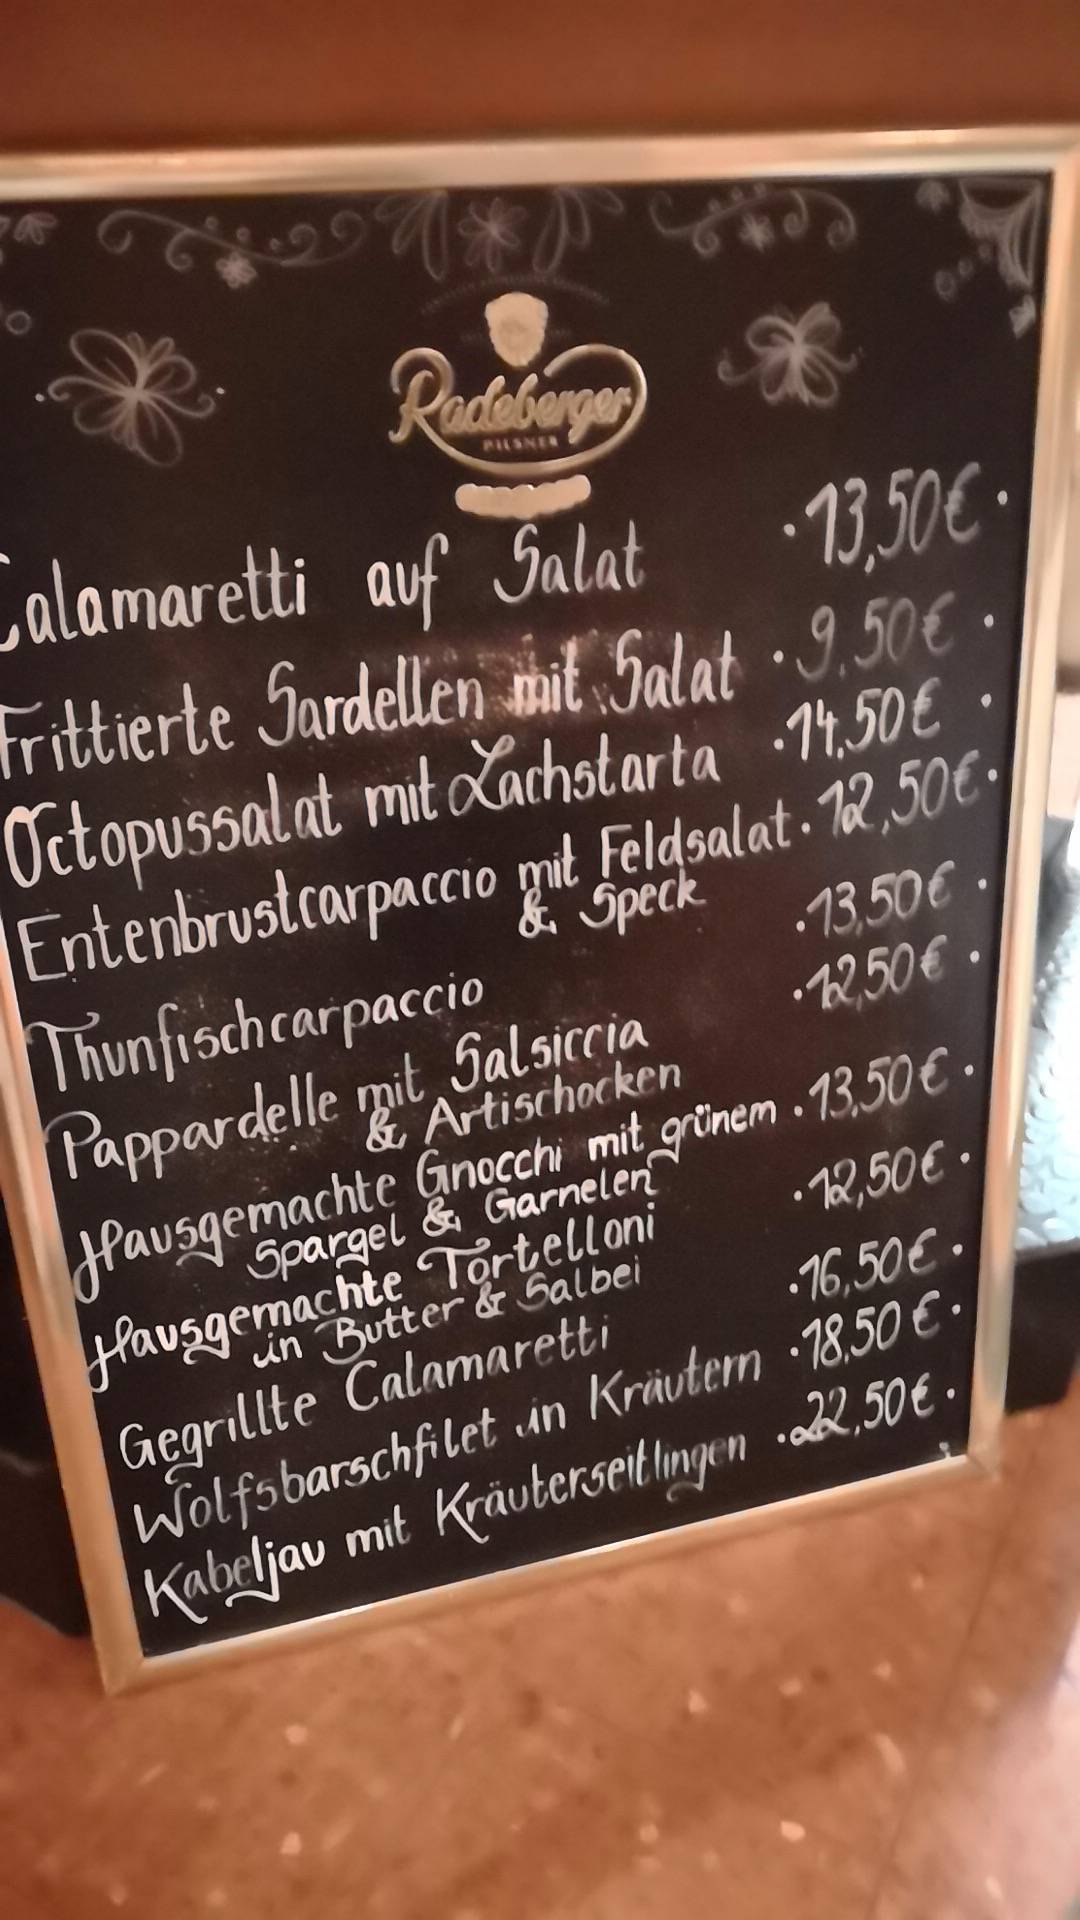 Radeberger
PILSNER
Calamaretti auf Salat · 13,50€ ·
Frittierte Sardellen mit Salat · 9,50€ ·
Octopussalat mit Lachstarta · 14,50€ ·
Entenbrustcarpaccio mit Feldsalat · 12,50€ ·
& Speck
Thunfischcarpaccio · 13,50€ ·
Pappardelle mit Salsiccia · 12,50€ ·
& Artischocken
Hausgemachte Gnocchi mit grünem · 13,50€ ·
Spargel & Garnelen
Hausgemachte Tortelloni · 12,50€ ·
in Butter & Salbei
Gegrillte Calamaretti · 16,50€ ·
Wolfsbarschfilet in Kräutern · 18,50€ ·
Kabeljau mit Kräuterseitlingen · 22,50€ ·